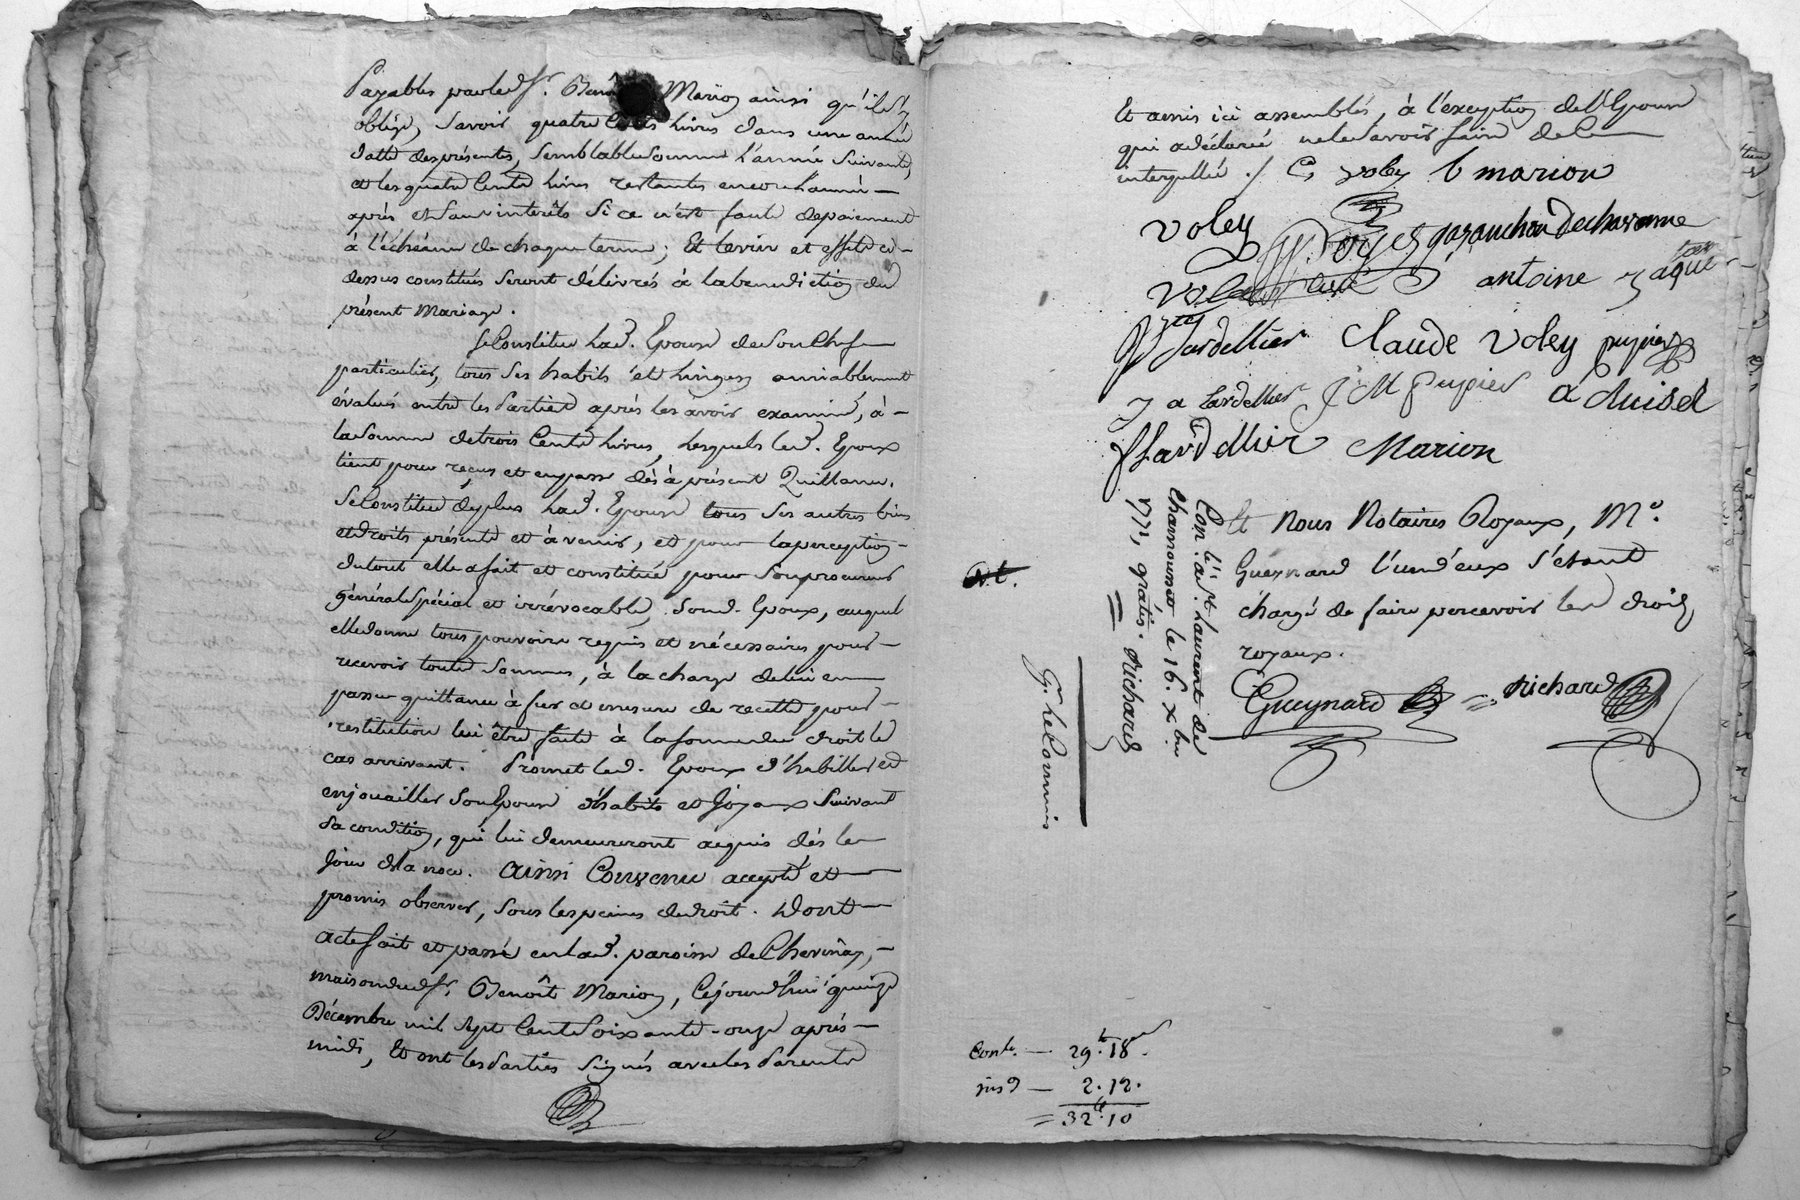 Payables par led. Sr. Benoît Marion ainsi qu'il s'y
oblige, Savoir quatre Cents livres dans une année
datte des présentes, Semblable Somme L'année Suivante,
et les quatre Cents livres restantes encore L'année
après et Sans interêts Si ce n'est faute de paiement
à l'échéance de chaque terme; Et et effets ci-
dessus constitués Seront délivrés à la bénédiction du
présent Mariage.
Se Constitue Lad. Epouse de Son Chef
particulier, tous Ses habits et linges amiablement
évalués entre les Parties après les avoir examiné, à
la Somme de trois Cents livres, Lesquels led. Epoux
tient pour reçus et en passe dès à présent Quittance.
Se Constitue de plus Lad. Epouse tous Ses autres biens
et droits présents et à venir, et pour la perception
du tout elle a fait et constitué pour Son procureur
général Spécial et irrévocable, Sond. Epoux, auquel
elle donne tous pouvoirs requis et nécessaires pour
recevoir toutes Sommes, à la charge de lui en
passer quittance à fur et mesure de recette pour
restitution lui être faite à la forme du droit le
cas arrivant. Promet led. Epoux d'habiller et
enjouailler Son Epouse d'habits et Joyaux Suivant
Sa condition, qui lui demeureront acquis dès le
Jour de la noce. Ainsi Convenu accepté et
promis observer, Sous les peines de droit. Dont
acte fait et passé en lad. paroisse de Chevinay,
maison dud. Sr. Benoît Marion, Cejourd'hui quinze
Décembre mil Sept Cent Soixante-onze après-
midi, Et ont les Parties Signés avec les Parents
Et amis ici assemblés, à l'exception de l'Epouse
qui a déclaré ne le Savoir faire de Ce
interpellée ./. voley b marion
voley gazanchon de chavanne
antoine jaque
Lardellier Claude Voley pupier
J a Lardellier J M Pupier
Lardellier Marion
Et Nous Notaires Royaux, Me.
Gueynard l'un d'eux s'étant
chargé de faire percevoir les droits
royaux.
Gueynard = Richard
Con. lé a St. Laurent de
Chamousset le 16. Xbre
1771, gratis. Richard
G. Le Commis
Conle. — 29.lt 18.
jns — 2.12.
= 32.lt 10